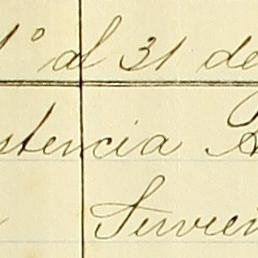 1º al 31 de
stencia A
Servien